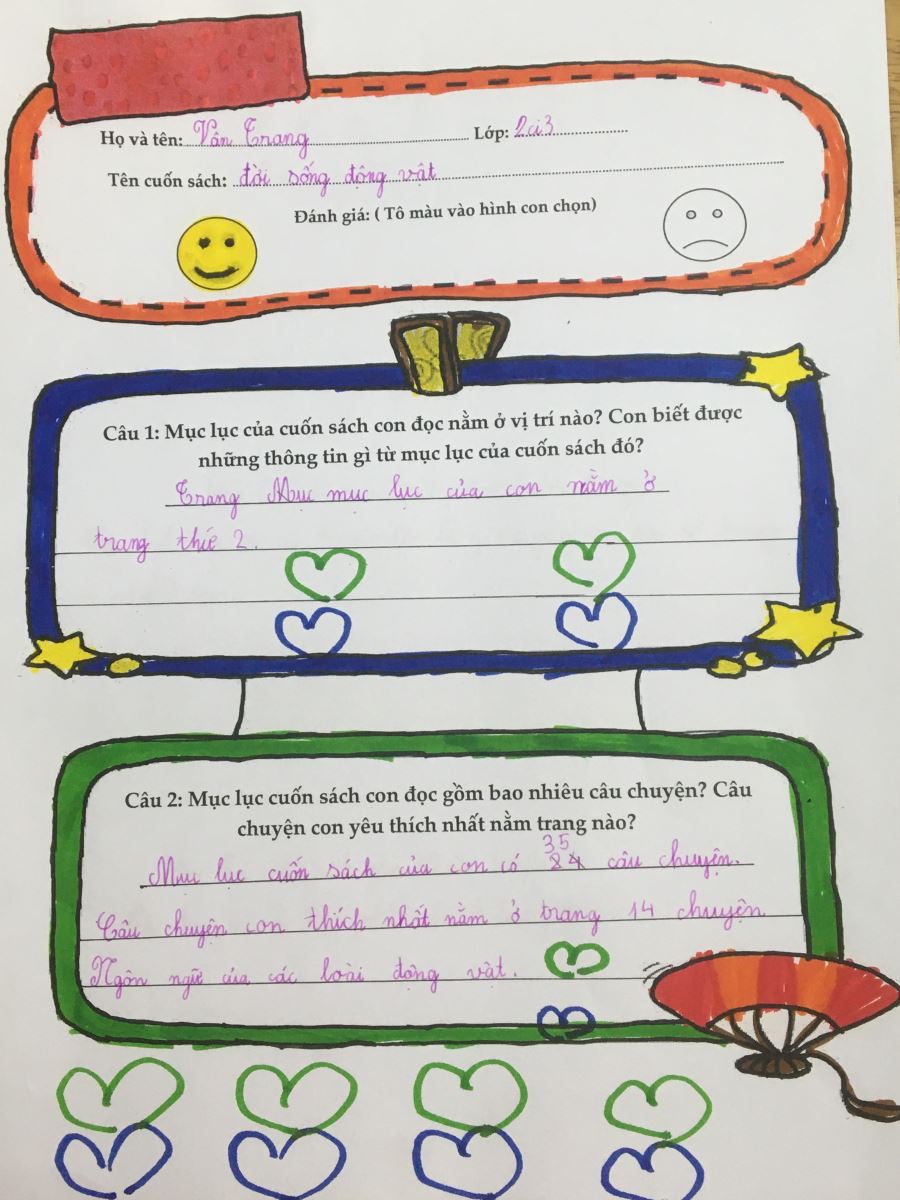 Họ và tên: Vân Trang Lớp: 2a3
Tên cuốn sách: đời sống động vật
Đánh giá: ( Tô màu vào hình con chọn)
Câu 1: Mục lục của cuốn sách con đọc nằm ở vị trí nào? Con biết được
những thông tin gì từ mục lục của cuốn sách đó?
Trang Mục mục lục của con nằm ở
trang thứ 2.
Câu 2: Mục lục cuốn sách con đọc gồm bao nhiêu câu chuyện? Câu
chuyện con yêu thích nhất nằm trang nào?
35
Mục lục cuốn sách của con có 24 câu chuyện.
Câu chuyện con thích nhất nằm ở trang 14 chuyện
Ngôn ngữ của các loài động vật.